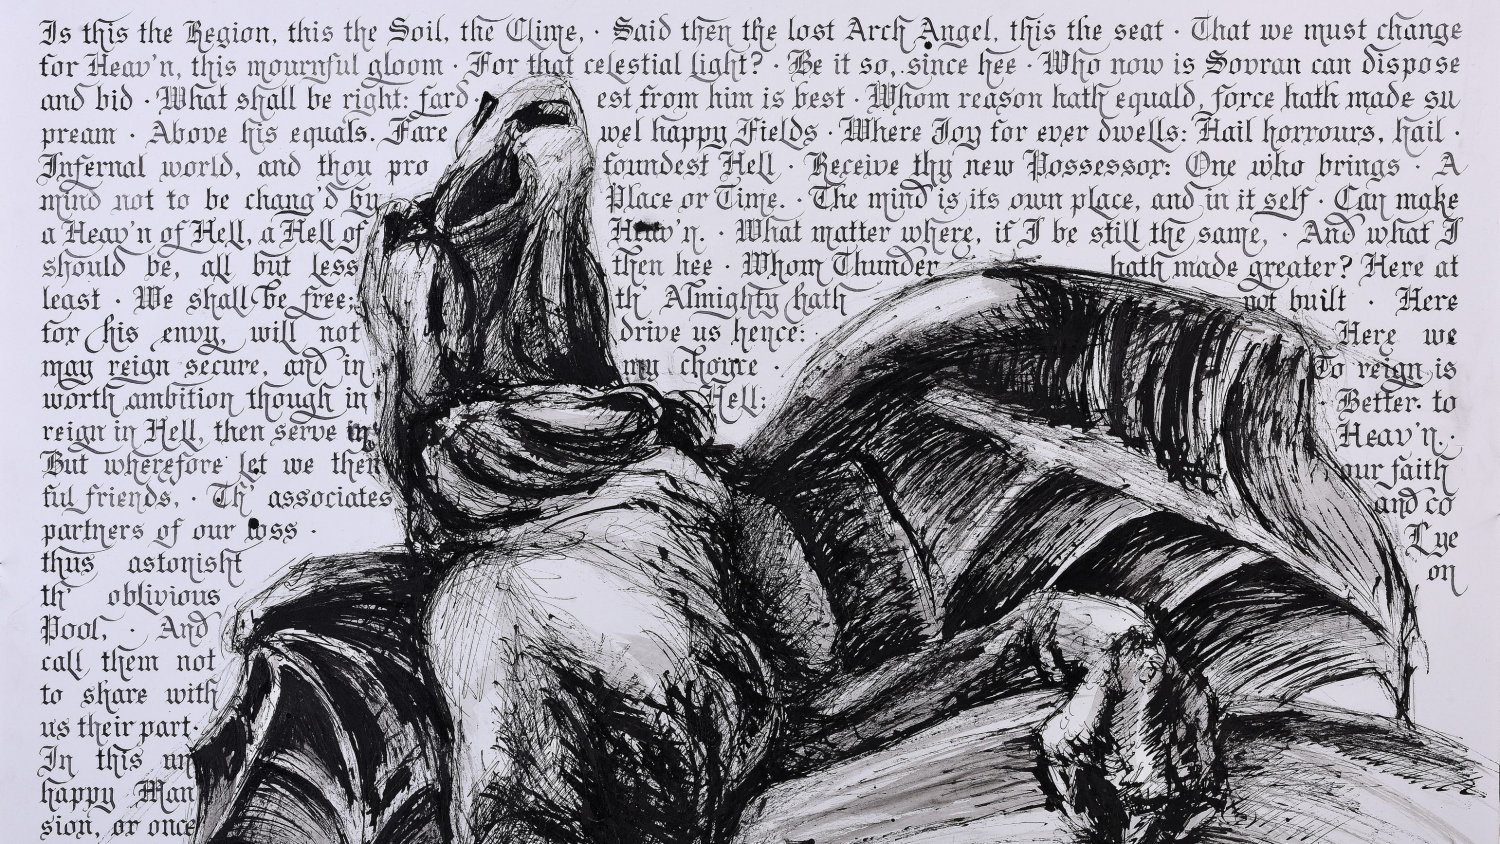 Is this the Region, this the Soil, the Clime, · Said then the lost Arch Angel, this the seat · That we must change
for Heav'n, this mournful gloom · For that celestial light? · Be it so, since hee · Who now is Sovran can dispose
and bid · What shall be right: fard · est from him is best · Whom reason hath equald, force hath made su
pream · Above his equals. Fare wel happy Fields · Where Joy for ever dwells: Hail horrours, hail ·
Infernal world, and thou pro foundest Hell · Receive thy new Possessor: One who brings · A
mind not to be chang'd by Place or Time. · The mind is its own place, and in it self · Can make
a Heav'n of Hell, a Hell of Heav'n. · What matter where, if I be still the same, · And what I
should be, all but less then hee · Whom Thunder hath made greater? Here at
least · We shall be free; th' Almighty hath not built · Here
for his envy, will not drive us hence: Here we
may reign secure, and in my choyce · To reign is
worth ambition though in Hell: · Better to
reign in Hell, then serve in Heav'n. ·
But wherefore let we then our faith
ful friends, · Th' associates and co
partners of our loss · Lye
thus astonisht on
th' oblivious
Pool, · And
call them not
to share with
us their part ·
In this un
happy Man
sion, or once